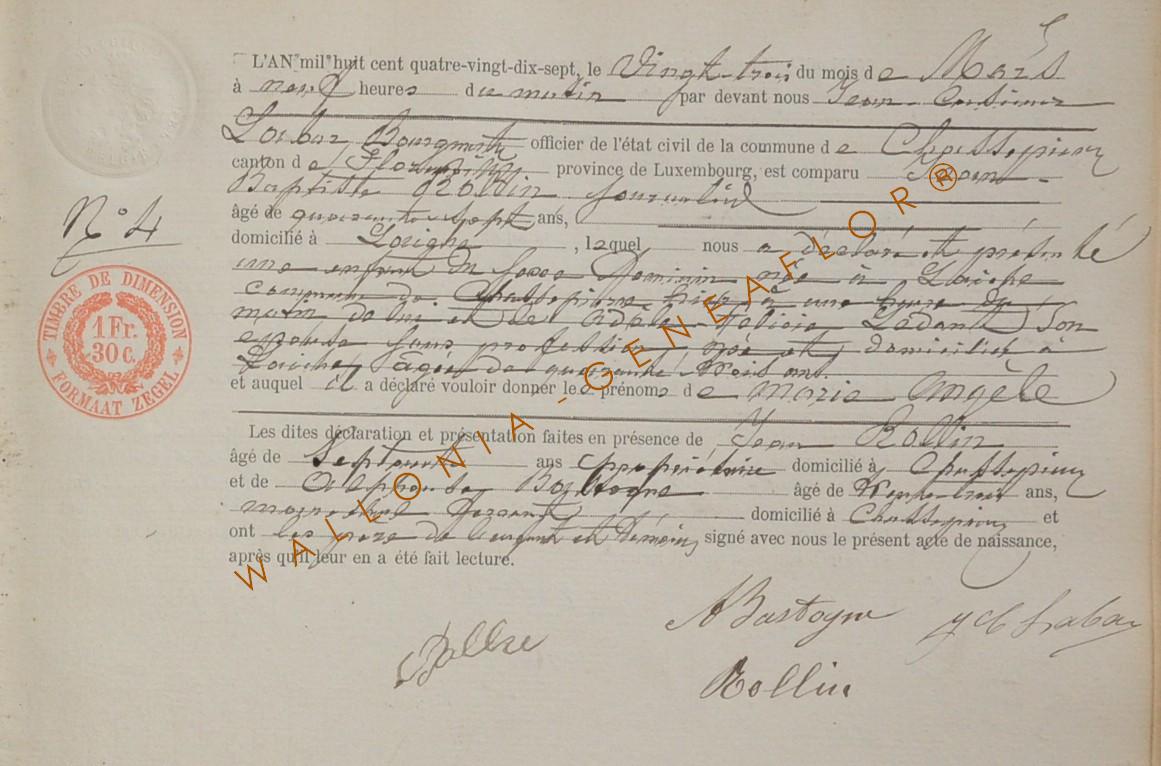 L'AN mil huit cent quatre-vingt-dix-sept, le Vingt-trois du mois de Mars
à neuf heures du matin par devant nous Jean
Bourgmestre officier de l'état civil de la commune de Chassepierre
canton de Florenville province de Luxembourg, est comparu Jean
Baptiste Rollin journalier
N° 4
âgé de quarante-sept ans,
domicilié à Laiche, lequel nous a déclaré et présenté
une enfant du sexe féminin née à Laiche
commune de Chassepierre hier à une heure du
matin de lui et de Adèle Félicie Ladant son
epouse sans profession, née et domiciliée à
Laiche, âgée de quarante trois ans.
et auquel il a déclaré vouloir donner les prénoms de Marie Angèle
Les dites déclaration et présentation faites en présence de Jean Rollin
âgé de Septante ans propriétaire domicilié à Chassepierre
et de Alphonse Bastogne âgé de trente-trois ans,
domicilié à Chassepierre et
ont les père de l'enfant et témoins signé avec nous le présent acte de naissance,
après qu'il leur en a été fait lecture.
TIMBRE DE DIMENSION
1 Fr.
30 c.
FORMAAT ZEGEL
WALLONIA - GENEAFLOR®
ABastogne
Rollin